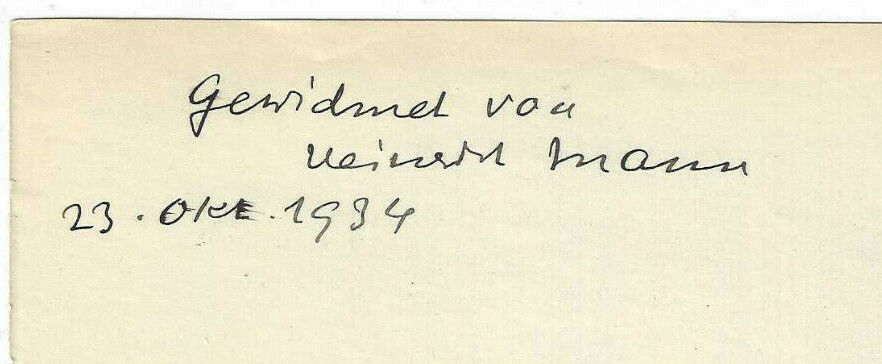 Gewidmet von
Heinrich Mann
23. Okt. 1934